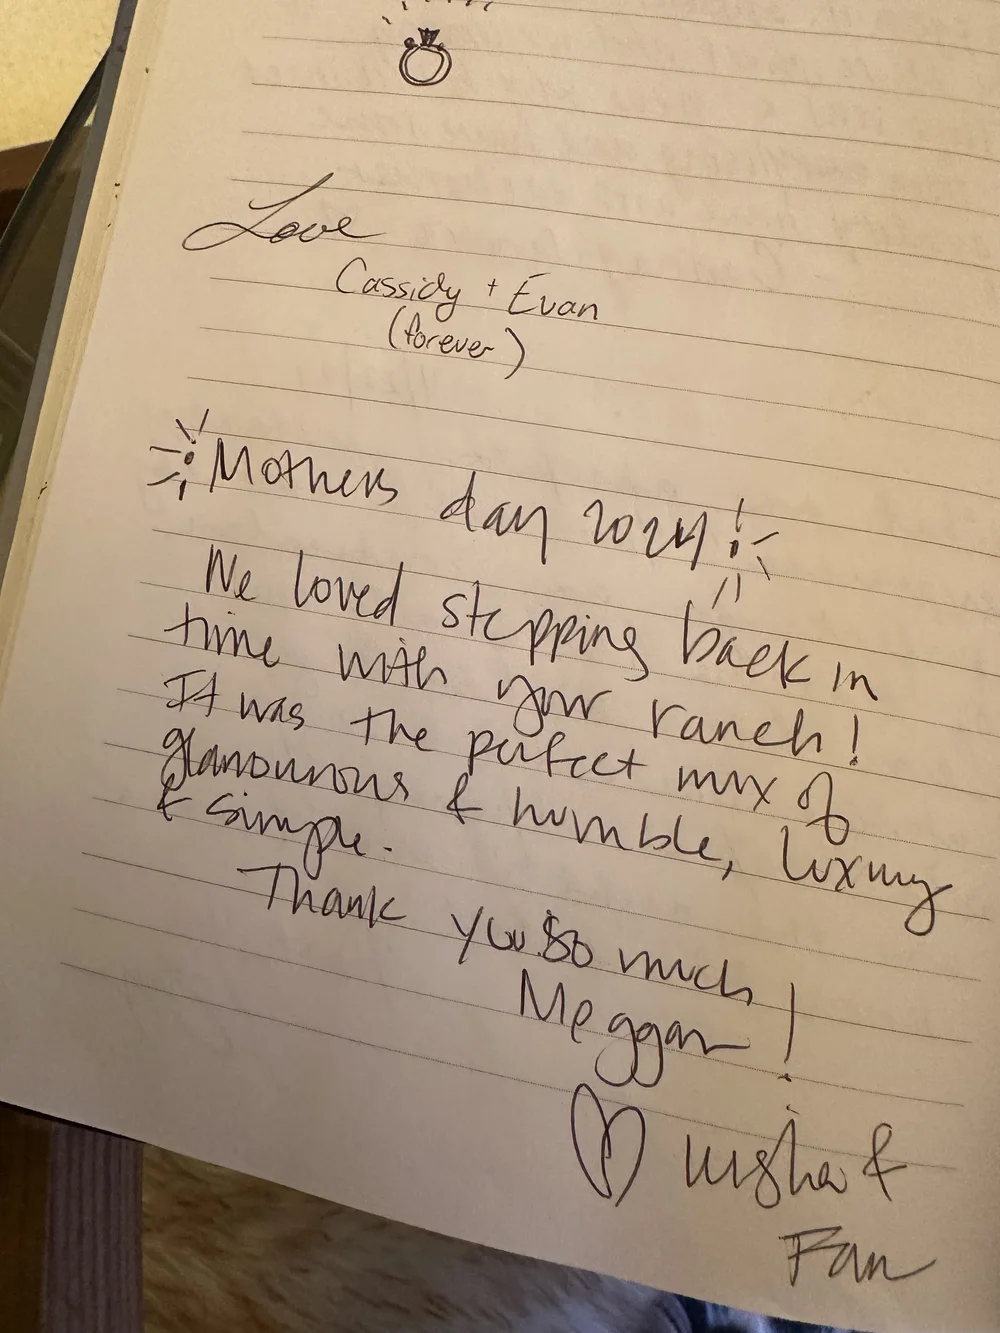 Love
Cassidy + Evan
(forever)
Mothers day 2024!
We loved stepping back in
time with your ranch!
It was the perfect mix of
glamourous & humble, luxury
& simple.
Thank you so much!
Meggan
&
Fan